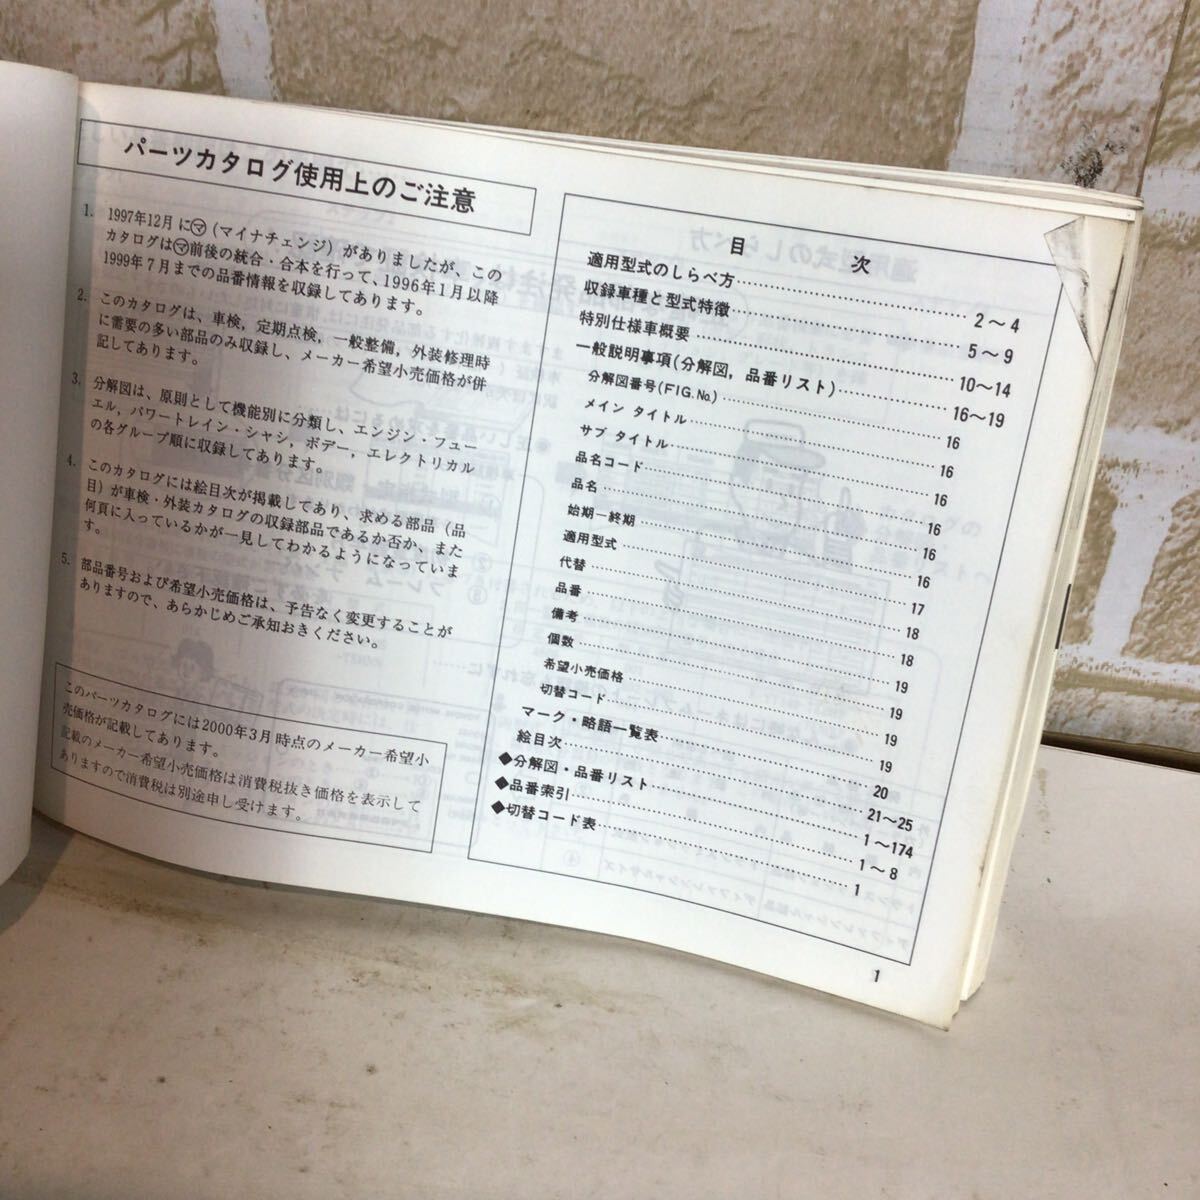 パーツカタログ使用上のご注意
1. 1997年12月に㋮(マイナチェンジ)がありましたが、この
カタログは㋮前後の統合・合本を行って、1996年1月以降
1999年7月までの品番情報を収録してあります。
2. このカタログは、車検,定期点検,一般整備,外装修理時
に需要の多い部品のみ収録し、メーカー希望小売価格が併
記してあります。
3. 分解図は、原則として機能別に分類し、エンジン・フュー
エル,パワートレイン・シャシ,ボデー,エレクトリカル
の各グループ順に収録してあります。
4. このカタログには絵目次が掲載してあり、求める部品(品
目)が車検・外装カタログの収録部品であるか否か、また
何頁に入っているかが一見してわかるようになっていま
す。
5. 部品番号および希望小売価格は、予告なく変更することが
ありますので、あらかじめご承知おきください。
このパーツカタログには2000年3月時点のメーカー希望小
売価格が記載してあります。
記載のメーカー希望小売価格は消費税抜き価格を表示して
ありますので消費税は別途申し受けます。
目 次
適用型式のしらべ方 2〜4
収録車種と型式特徴 5〜9
特別仕様車概要 10〜14
一般説明事項(分解図,品番リスト) 16〜19
分解図番号(FIG.No.) 16
メイン タイトル 16
サブ タイトル 16
品名コード 16
品名 16
始期―終期 16
適用型式 17
代替 18
品番 18
備考 19
個数 19
希望小売価格 19
切替コード 19
マーク・略語一覧表 20
絵目次 21〜25
◆分解図・品番リスト 1〜174
◆品番索引 1〜8
◆切替コード表 1
1